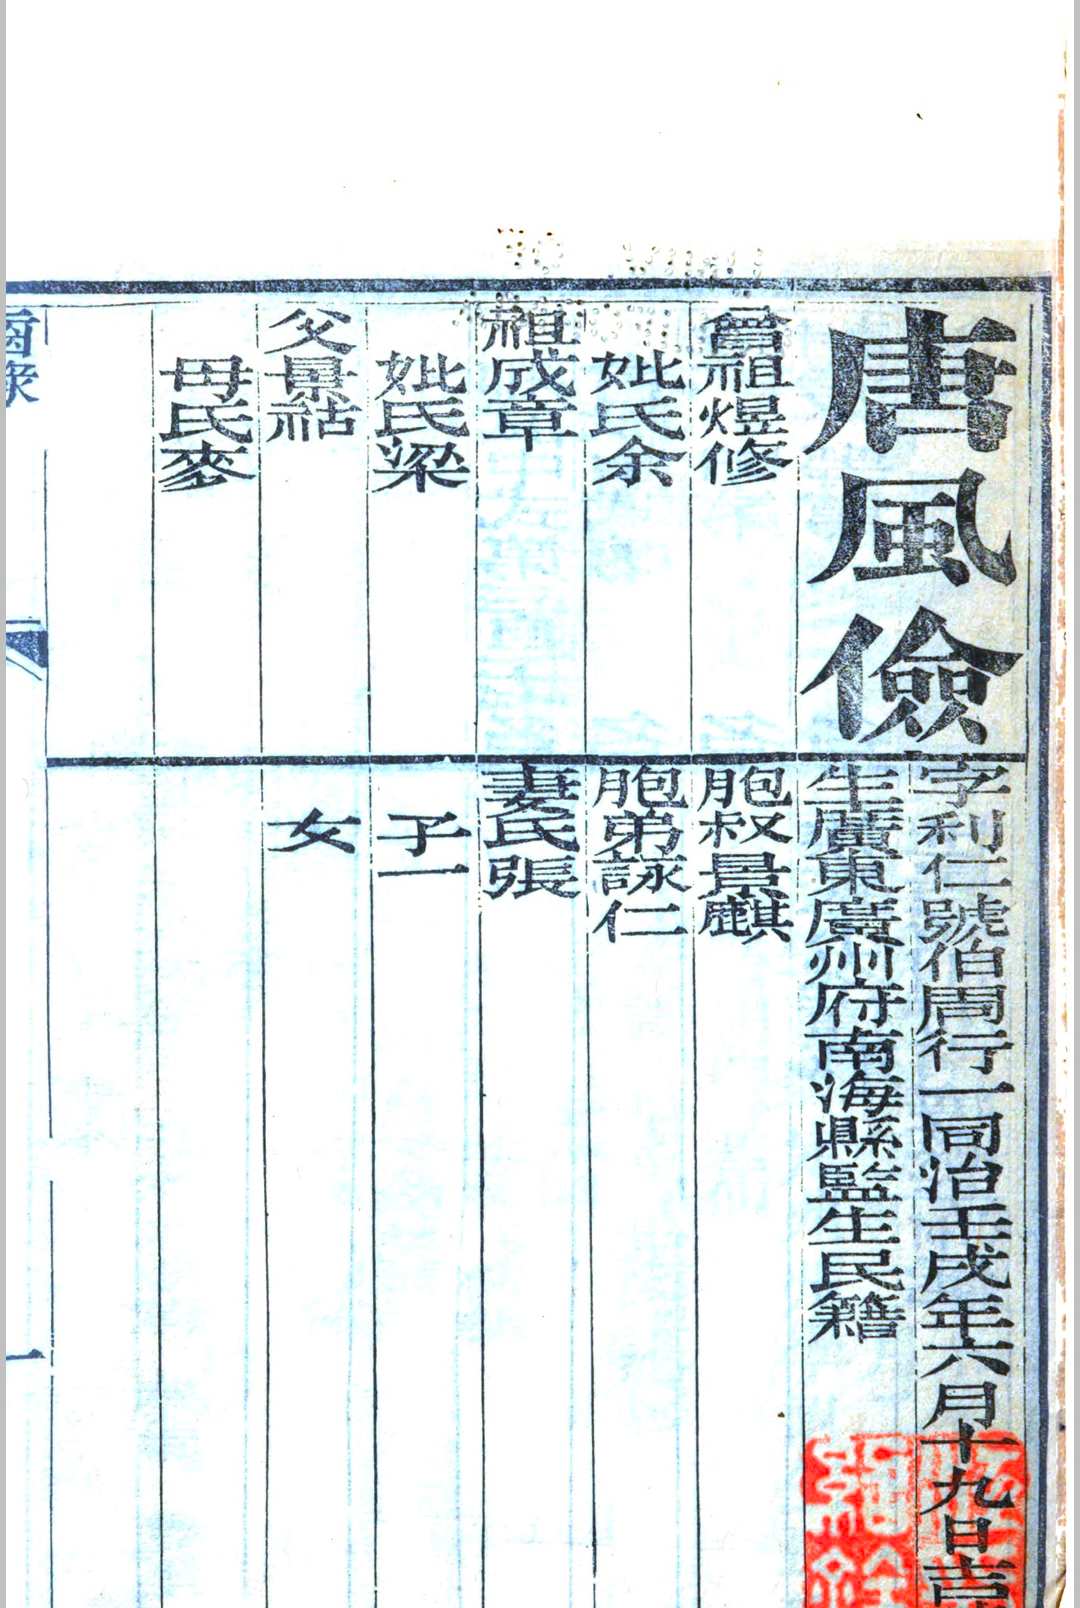 唐風儉
字利仁號伯周行一同治壬戌年六月十九日吉
生廣東廣州府南海縣監生民籍
曾祖煜修
妣氏余
祖成章
妣氏梁
父景祜
母氏麥
胞叔景麒
胞弟詠仁
妻氏張
子一
女
齒錄
一